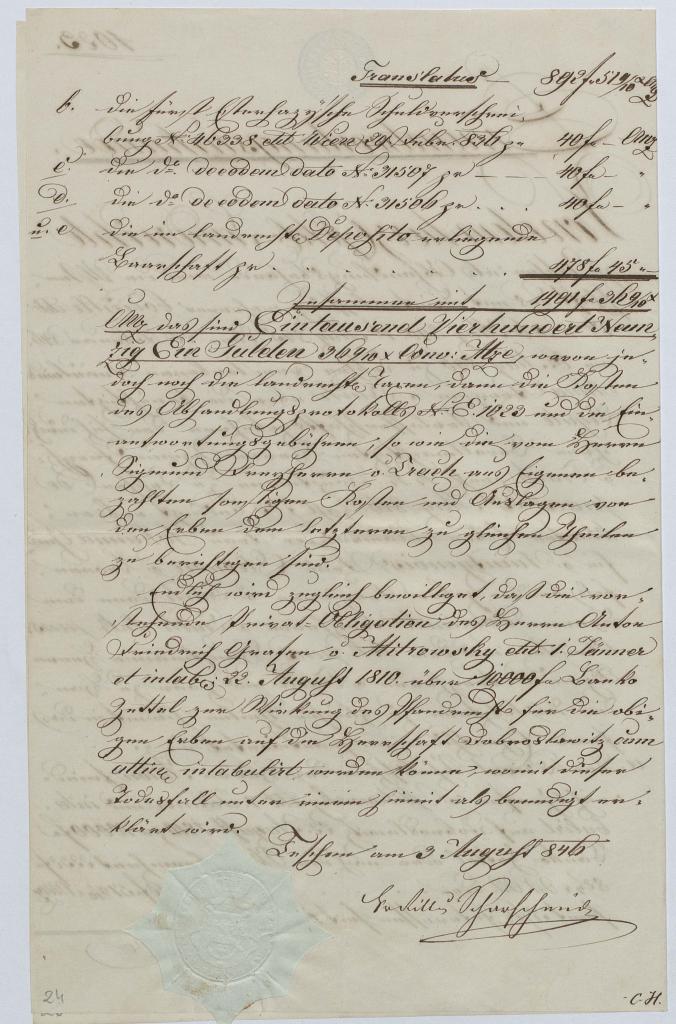 Translatus — 892 f. 51 9/10 x CMz
b. die Fürst Esterhazy'sche Schuldverschrei-
bung No. 46338 dt. Wien 29. Febr. 836 pr 40 f. — CMz
c. die do. de eodem dato No. 31507 pr — — 40 f. — "
d. die do. de eodem dato No. 31506 pr . . . 40 f. — "
u. e die im landrechts. Deposito erliegende
Baarschaft pr. . . . . . . 478 f. 45 " —
Zusammen mit 1491 f. 36 9/10 x
CMz das sind Eintausend Vierhundert Neun-
zig Ein Gulden 36 9/10 x Conv: Mze, wovon je-
doch noch die landrechts. Taxen, dann die Kosten
des Abhandlungsprotokolls No. E. 1023 und die Ein-
antwortungsgebühren, so wie die vom Herrn
Sigmund Freyherrn v. Trach aus Eigenem be-
zahlten sonstigen Kosten und Auslagen von
den Erben dem letzteren zu gleichen Theilen
zu berichtigen sind.
Endlich wird zugleich bewilliget, daß die vor-
stehende Privat-Obligation des Herrn Anton
Friedrich Grafen v. Mitrowsky dt. 1. Jänner
et intab. 22. August 1810. über 10,000 f. Banko
Zettel zur Wirkung des Pfandrechts für die obi-
gen Erben auf die Herrschaft Dobroslawitz cum
attin. intabulirt werden könne, womit dieser
Todesfall unter Einem hiemit als beendigt er-
klärt wird.
Teschen am 3 August 846
Scharschmid
24
C.H.